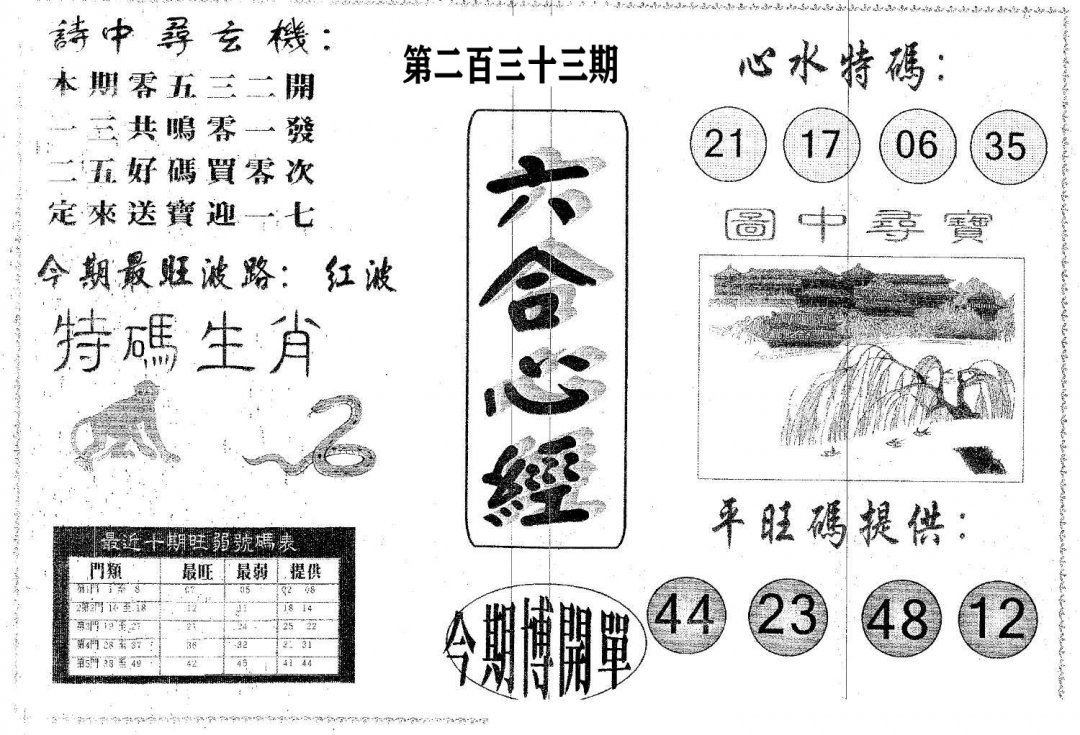 詩中尋玄機：
本期零五三二開
一三共鳴零一發
二五好碼買零次
定來送寶迎一七
今期最旺波路：紅波
特碼生肖
最近十期旺弱號碼表
門類 最旺 最弱 提供
第1門 1 至 8 07 05 02 08
第2門 10 至 18 12 11 18 14
第3門 19 至 27 21 24 25 22
第4門 28 至 37 36 32 31
第5門 38 至 49 42 45 41 44
第二百三十三期
六合心經
今期博開單
心水特碼：
21 17 06 35
圖中尋寶
平旺碼提供：
44 23 48 12